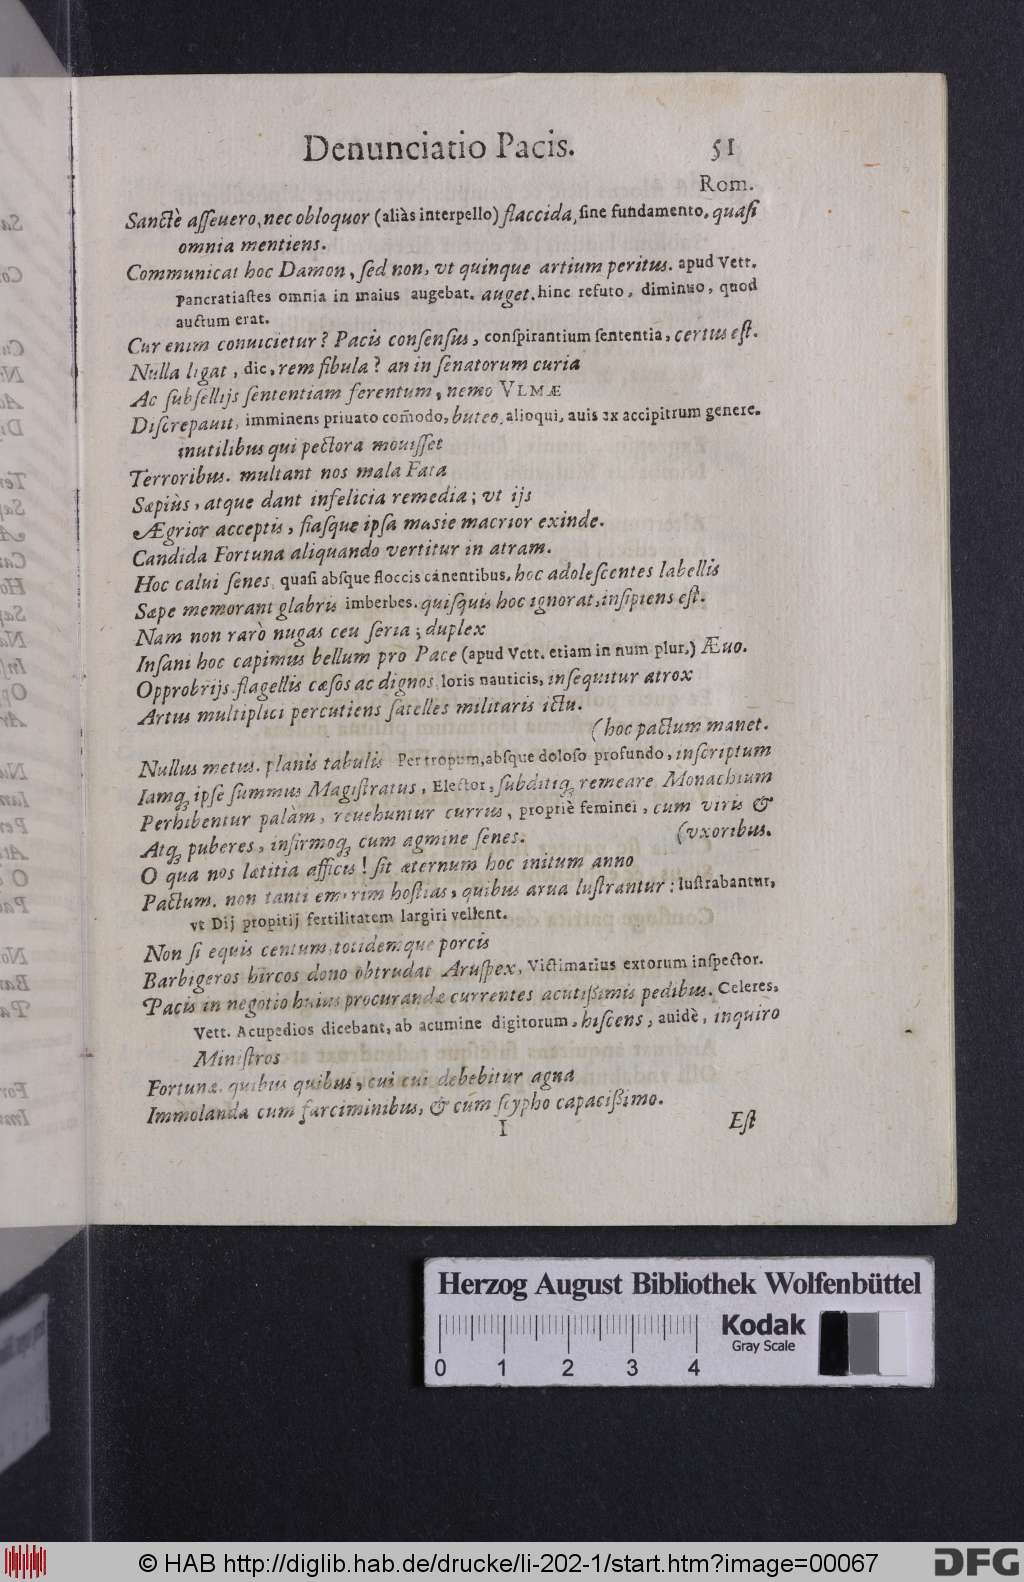 Denunciatio Pacis. 51
Rom.
Sanctè asseuero, nec obloquor (aliàs interpello) flaccida, sine fundamento, quasi
omnia mentiens.
Communicat hoc Damon, sed non, vt quinque artium peritus. apud Vett.
Pancratiastes omnia in maius augebat. auget. hinc refuto, diminuo, quod
auctum erat.
Cur enim conuicietur? Pacis consensus, conspirantium sententia, certus est.
Nulla ligat, dic, rem fibula? an in senatorum curia
Ac subsellijs sententiam ferentum, nemo VLMÆ
Discrepauit, imminens priuato com̃odo, buteo, alioqui, auis ex accipitrum genere.
inutilibus qui pectora mouisset
Terroribus. multant nos mala Fata
Sæpiùs, atque dant infelicia remedia; vt ijs
Ægrior acceptis, fiasque ipsa masie macrior exinde.
Candida Fortuna aliquando vertitur in atram.
Hoc calui senes, quasi absque floccis canentibus, hoc adolescentes labellis
Sæpe memorant glabris imberbes. quisquis hoc ignorat, insipiens est.
Nam non rarò nugas ceu seria; duplex
Insani hoc capimus bellum pro Pace (apud Vett. etiam in num plur.) Æuo.
Opprobrijs flagellis cæsos ac dignos loris nauticis, insequitur atrox
Artus multiplici percutiens satelles militaris ictu.
(hoc pactum manet.
Nullus metus. planis tabulis Per tropum, absque doloso profundo, inscriptum
Iamq; ipse summus Magistratus, Elector, subditiq; remeare Monachium
Perhibentur palàm, reuehuntur currus, propriè feminei, cum viris &
Atq; puberes, infirmoq; cum agmine senes. (vxoribus.
O qua nos lætitia afficis! sit æternum hoc initum anno
Pactum. non tanti emerim hostias, quibus arua lustrantur: lustrabantur,
vt Dij propitij fertilitatem largiri vellent.
Non si equis centum, totidemque porcis
Barbigeros hircos dono obtrudat Aruspex, Victimarius extorum inspector.
Pacis in negotio huius procurandæ currentes acutissimis pedibus. Celeres,
Vett. Acupedios dicebant, ab acumine digitorum, hiscens, auidè, inquiro
Ministros
Fortunæ. quibus quibus, cui cui debebitur agna
Immolanda cum farciminibus, & cum scypho capacissimo.
I Est
Herzog August Bibliothek Wolfenbüttel
0 1 2 3 4
Kodak
Gray Scale
© HAB http://diglib.hab.de/drucke/li-202-1/start.htm?image=00067
DFG